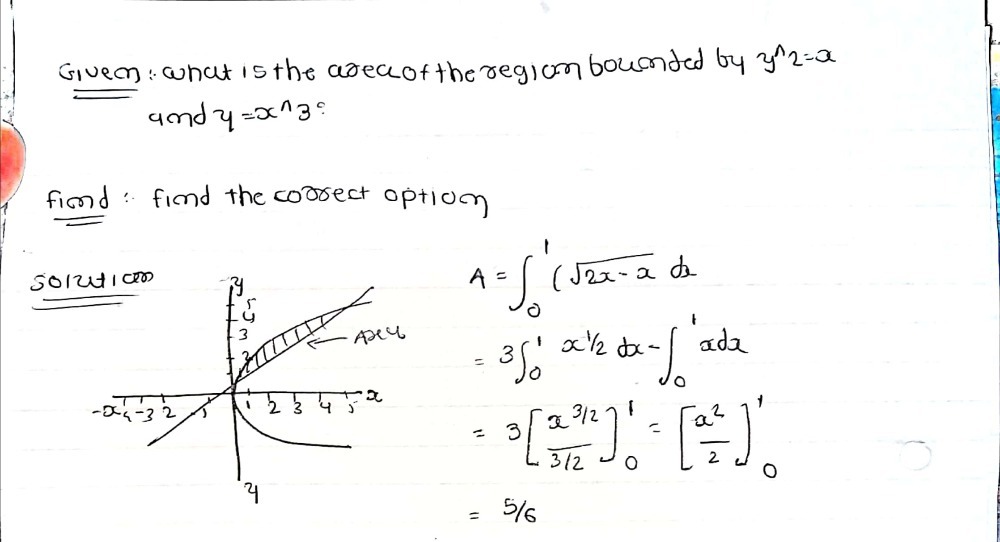 Given : what is the area of the region bounded by y^2=x
and y=x^3:
find : find the correct option
solution
y
5
4
3
2
Area
-x -4 -3 2 1 1 2 3 4 5 x
y
A = ∫₀¹ (√2x-x dx
= 3∫₀¹ x1/2 dx - ∫₀¹ xdx
= 3[x^3/2 / 3/2]₀¹ = [x²/2]₀¹
= 5/6